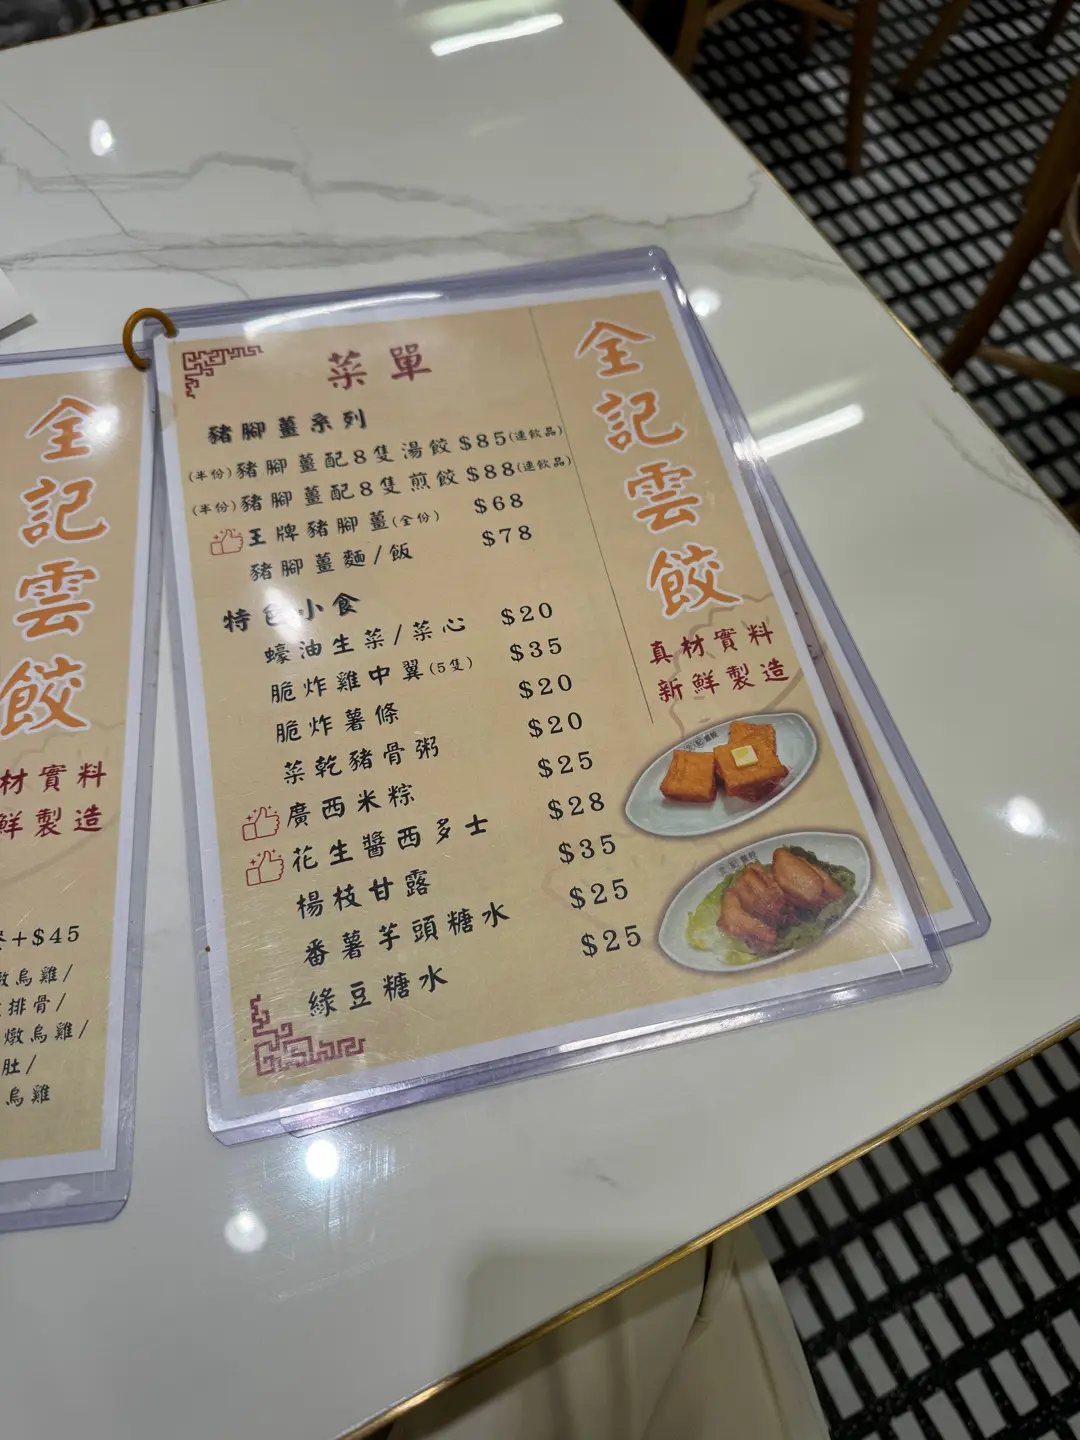 菜單
豬腳薑系列
(半份)豬腳薑配8隻湯餃 $85(連飲品)
(半份)豬腳薑配8隻煎餃 $88(連飲品)
王牌豬腳薑(全份) $68
豬腳薑麵/飯 $78
特色小食
蠔油生菜/菜心 $20
脆炸雞中翼(5隻) $35
脆炸薯條 $20
菜乾豬骨粥 $20
廣西米粽 $25
花生醬西多士 $28
楊枝甘露 $35
番薯芋頭糖水 $25
綠豆糖水 $25
全記雲餃
真材實料
新鮮製造
全記雲餃
材實料
鮮製造
+$45
燉烏雞/
排骨/
燉烏雞/
肚/
烏雞